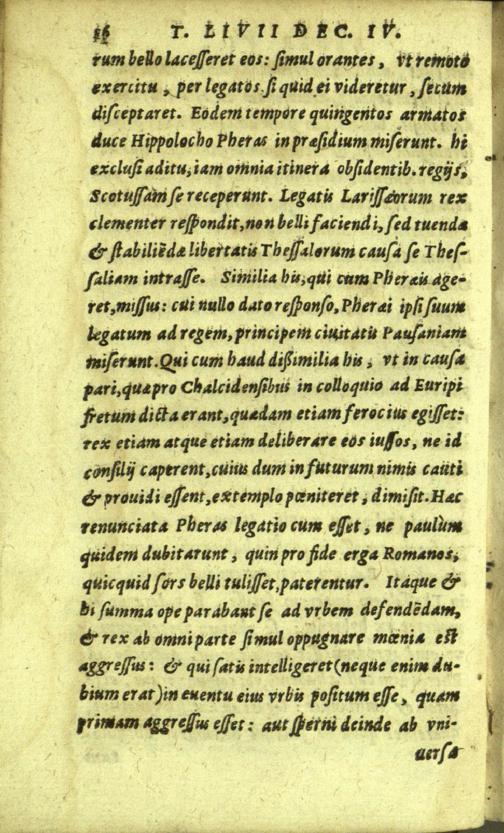 16 T. LIVII DEC. IV.
rum bello lacesseret eos: simul orantes, vt remoto
exercitu, per legatos si quid ei videretur, secum
disceptaret. Eodem tempore quingentos armatos
duce Hippolocho Pheras in præsidium miserunt. hi
exclusi aditu, iam omnia itinera obsidentib. regijs,
Scotussam se receperunt. Legatis Larissæorum rex
clementer respondit, non belli faciendi, sed tuendæ
& stabiliēdæ libertatis Thessalorum causa se Thes-
saliam intrasse. Similia his, qui cum Pheræis age-
ret, missus: cui nullo dato responso, Pheræi ipsi suum
legatum ad regem, principem ciuitatis Pausaniam
miserunt. Qui cum haud dißimilia his, vt in causa
pari, quæ pro Chalcidensibus in colloquio ad Euripi
fretum dicta erant, quædam etiam ferocius egisset:
rex etiam atque etiam deliberare eos iussos, ne id
consilij caperent, cuius dum in futurum nimis cauti
& prouidi essent, extemplo pœniteret, dimisit. Hæc
renunciata Pheras legatio cum esset, ne paulùm
quidem dubitarunt, quin pro fide erga Romanos,
quicquid sors belli tulisset, paterentur. Itaque &
hi summa ope parabant se ad vrbem defendēdam,
& rex ab omni parte simul oppugnare mœnia est
aggressus: & qui satis intelligeret (neque enim du-
bium erat) in euentu eius vrbis positum esse, quam
primam aggressus esset: aut sperni deinde ab vni-
uersa